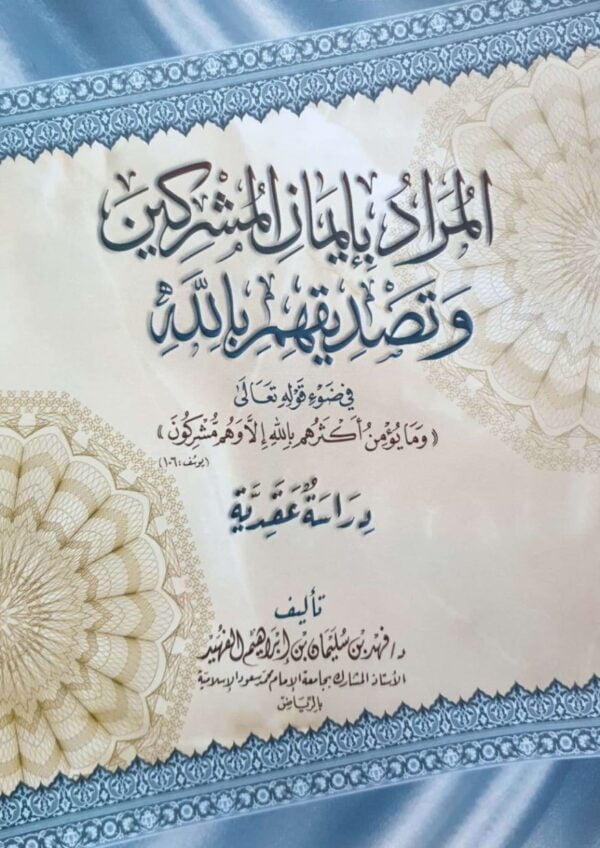 المُرَادُ بِإِيمَانِ المُشْرِكِينَ
وَتَصْدِيقِهِمْ بِاللَّهِ
في ضَوْءِ قَوْلِهِ تَعَالَى
﴿وَمَا يُؤْمِنُ أَكْثَرُهُم بِاللَّهِ إِلَّا وَهُم مُّشْرِكُونَ﴾
(يوسُف: ١٠٦)
دِرَاسَةٌ عَقَدِيَّةٌ
تأليف
د/ فهد بن سُلَيْمَان بن إِبْرَاهِيم الفهَيْد
الأستاذ المشارك بجامعة الإمام محمد سعود الإسلامية
بالرِّيَاض